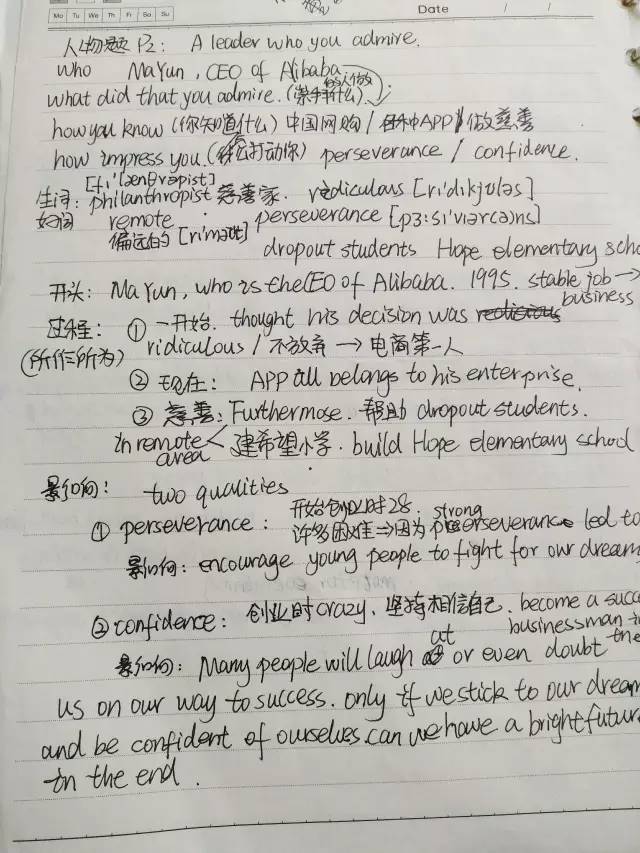 Mo Tu We Th Fr Sa Su
Date / /
人物题 P2: A leader who you admire.
who Ma Yun, CEO of Alibaba
what did that you admire. (崇拜什么)
how you know (你知道什么) 中国网购 / APP / 做慈善
how impress you (怎么打动你) perseverance / confidence.
生词: philanthropist 慈善家. rediculous [ri'dikjʊləs]
好词 remote perseverance
偏远的
dropout students Hope elementary scho
开头: Ma Yun, who is the CEO of Alibaba. 1995. stable job →
business
过程: ① 一开始. thought his decision was
(所作所为) ridiculous / 不放弃 → 电商第一人
② 现在: APP all belongs to his enterprise.
③ 慈善: Furthermose. 帮助 dropout students.
in remote < 建希望小学. build Hope elementary school
area
影响: two qualities
开始创业时28. strong
① perseverance: 许多困难 ⇒ 因为 perseverance led to
影响: encourage young people to fight for our dream
② confidence: 创业时 crazy, 坚持相信自己. become a succe
businessman in
影响: Many people will laugh at or even doubt the
us on our way to success. only if we stick to our dream
and be confident of ourselves can we have a bright futur
in the end.